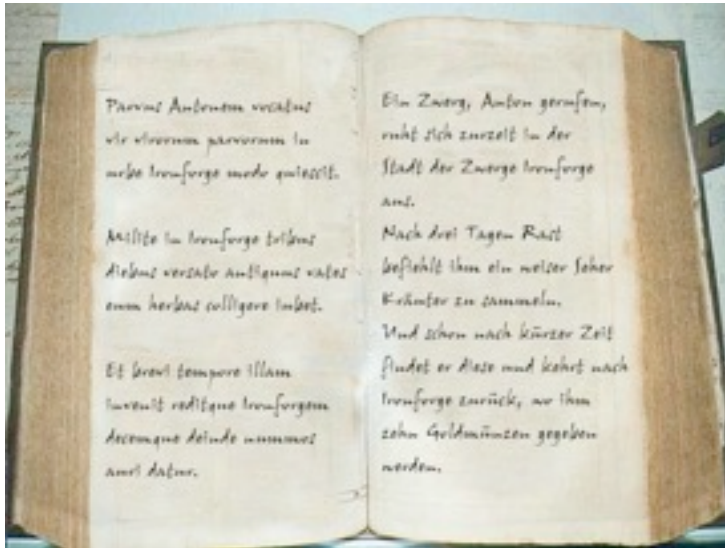 Parvus Antonem vocatus
vir virorum parvorum in
urbe Ironforge modo quiescit.
Milite in Ironforge tribus
diebus versato antiquus vates
eum herbas colligere iubet.
Et brevi tempore illam
invenit reditque Ironforgem
decemque deinde nummos
auri datur.
Ein Zwerg, Anton gerufen,
ruht sich zurzeit in der
Stadt der Zwerge Ironforge
aus.
Nach drei Tagen Rast
befiehlt ihm ein weiser Seher
Kräuter zu sammeln.
Und schon nach kurzer Zeit
findet er diese und kehrt nach
Ironforge zurück, wo ihm
zehn Goldmünzen gegeben
werden.